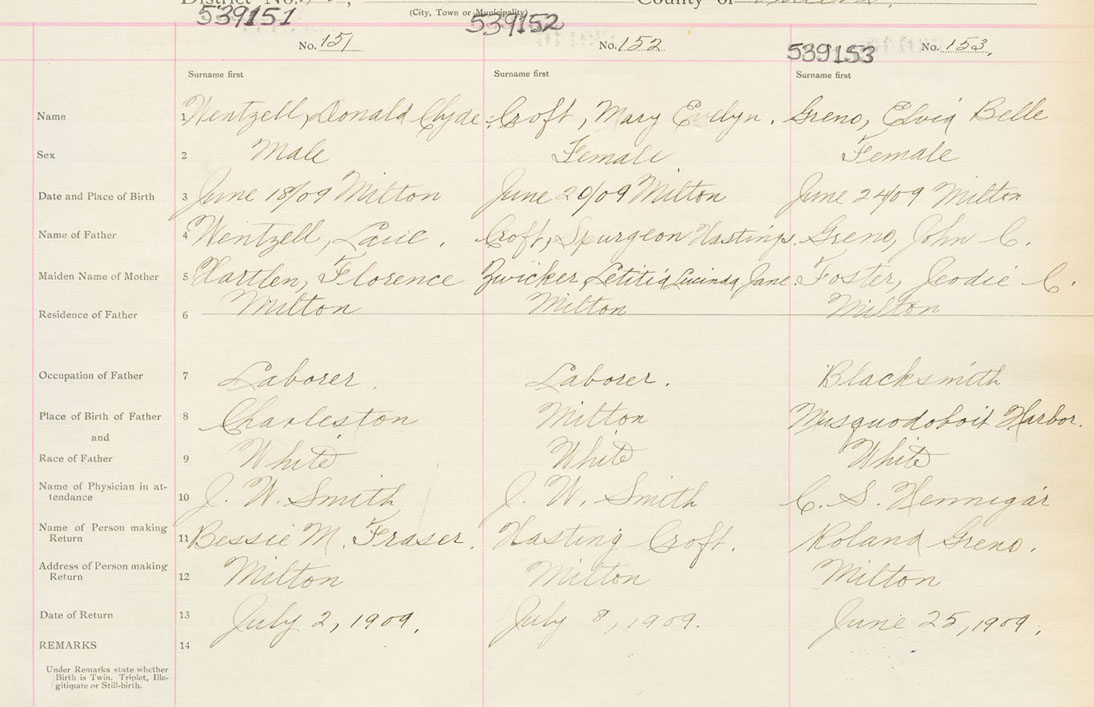 District No.
County of
(City, Town or Municipality)
539151
539152
539153
No. 151
No. 152
No. 153.
Surname first
Surname first
Surname first
Name
1 Wentzell, Donald Clyde
Croft, Mary Evelyn.
Greno, Elvia Belle
Sex
2 Male
Female
Female
Date and Place of Birth
3 June 18/09 Milton
June 20/09 Milton
June 24/09 Milton
Name of Father
4 Wentzell,
Croft, Spurgeon Hastings.
Greno, John C.
Maiden Name of Mother
5 Hartlen, Florence
Zwicker, Letitia Lucinda Jane.
Foster, C.
Residence of Father
6 Milton
Milton
Milton
Occupation of Father
7 Laborer.
Laborer.
Blacksmith
Place of Birth of Father
8 Charleston
Milton
Musquodoboit Harbor.
and
Race of Father
9 White
White
White
Name of Physician in at-
tendance
10 J. W. Smith
J. W. Smith
C. S. Hennigar
Name of Person making
Return
11 Bessie M. Fraser.
Hasting Croft.
Roland Greno.
Address of Person making
Return
12 Milton
Milton
Milton
Date of Return
13 July 2, 1909.
July 8, 1909.
June 25, 1909.
REMARKS
14
Under Remarks state whether
Birth is Twin. Triplet, Ille-
gitimate or Still-birth.